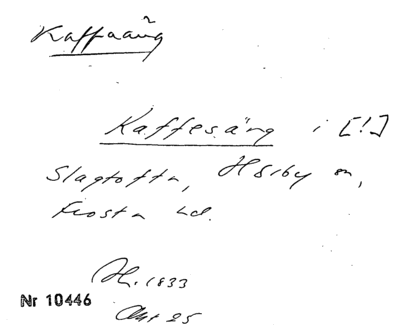 Kaffaäng
Kaffesäng i [!]
Slagtofta, Hörby sn,
Frosta hd.
1833
Nr 10446
Akt 25